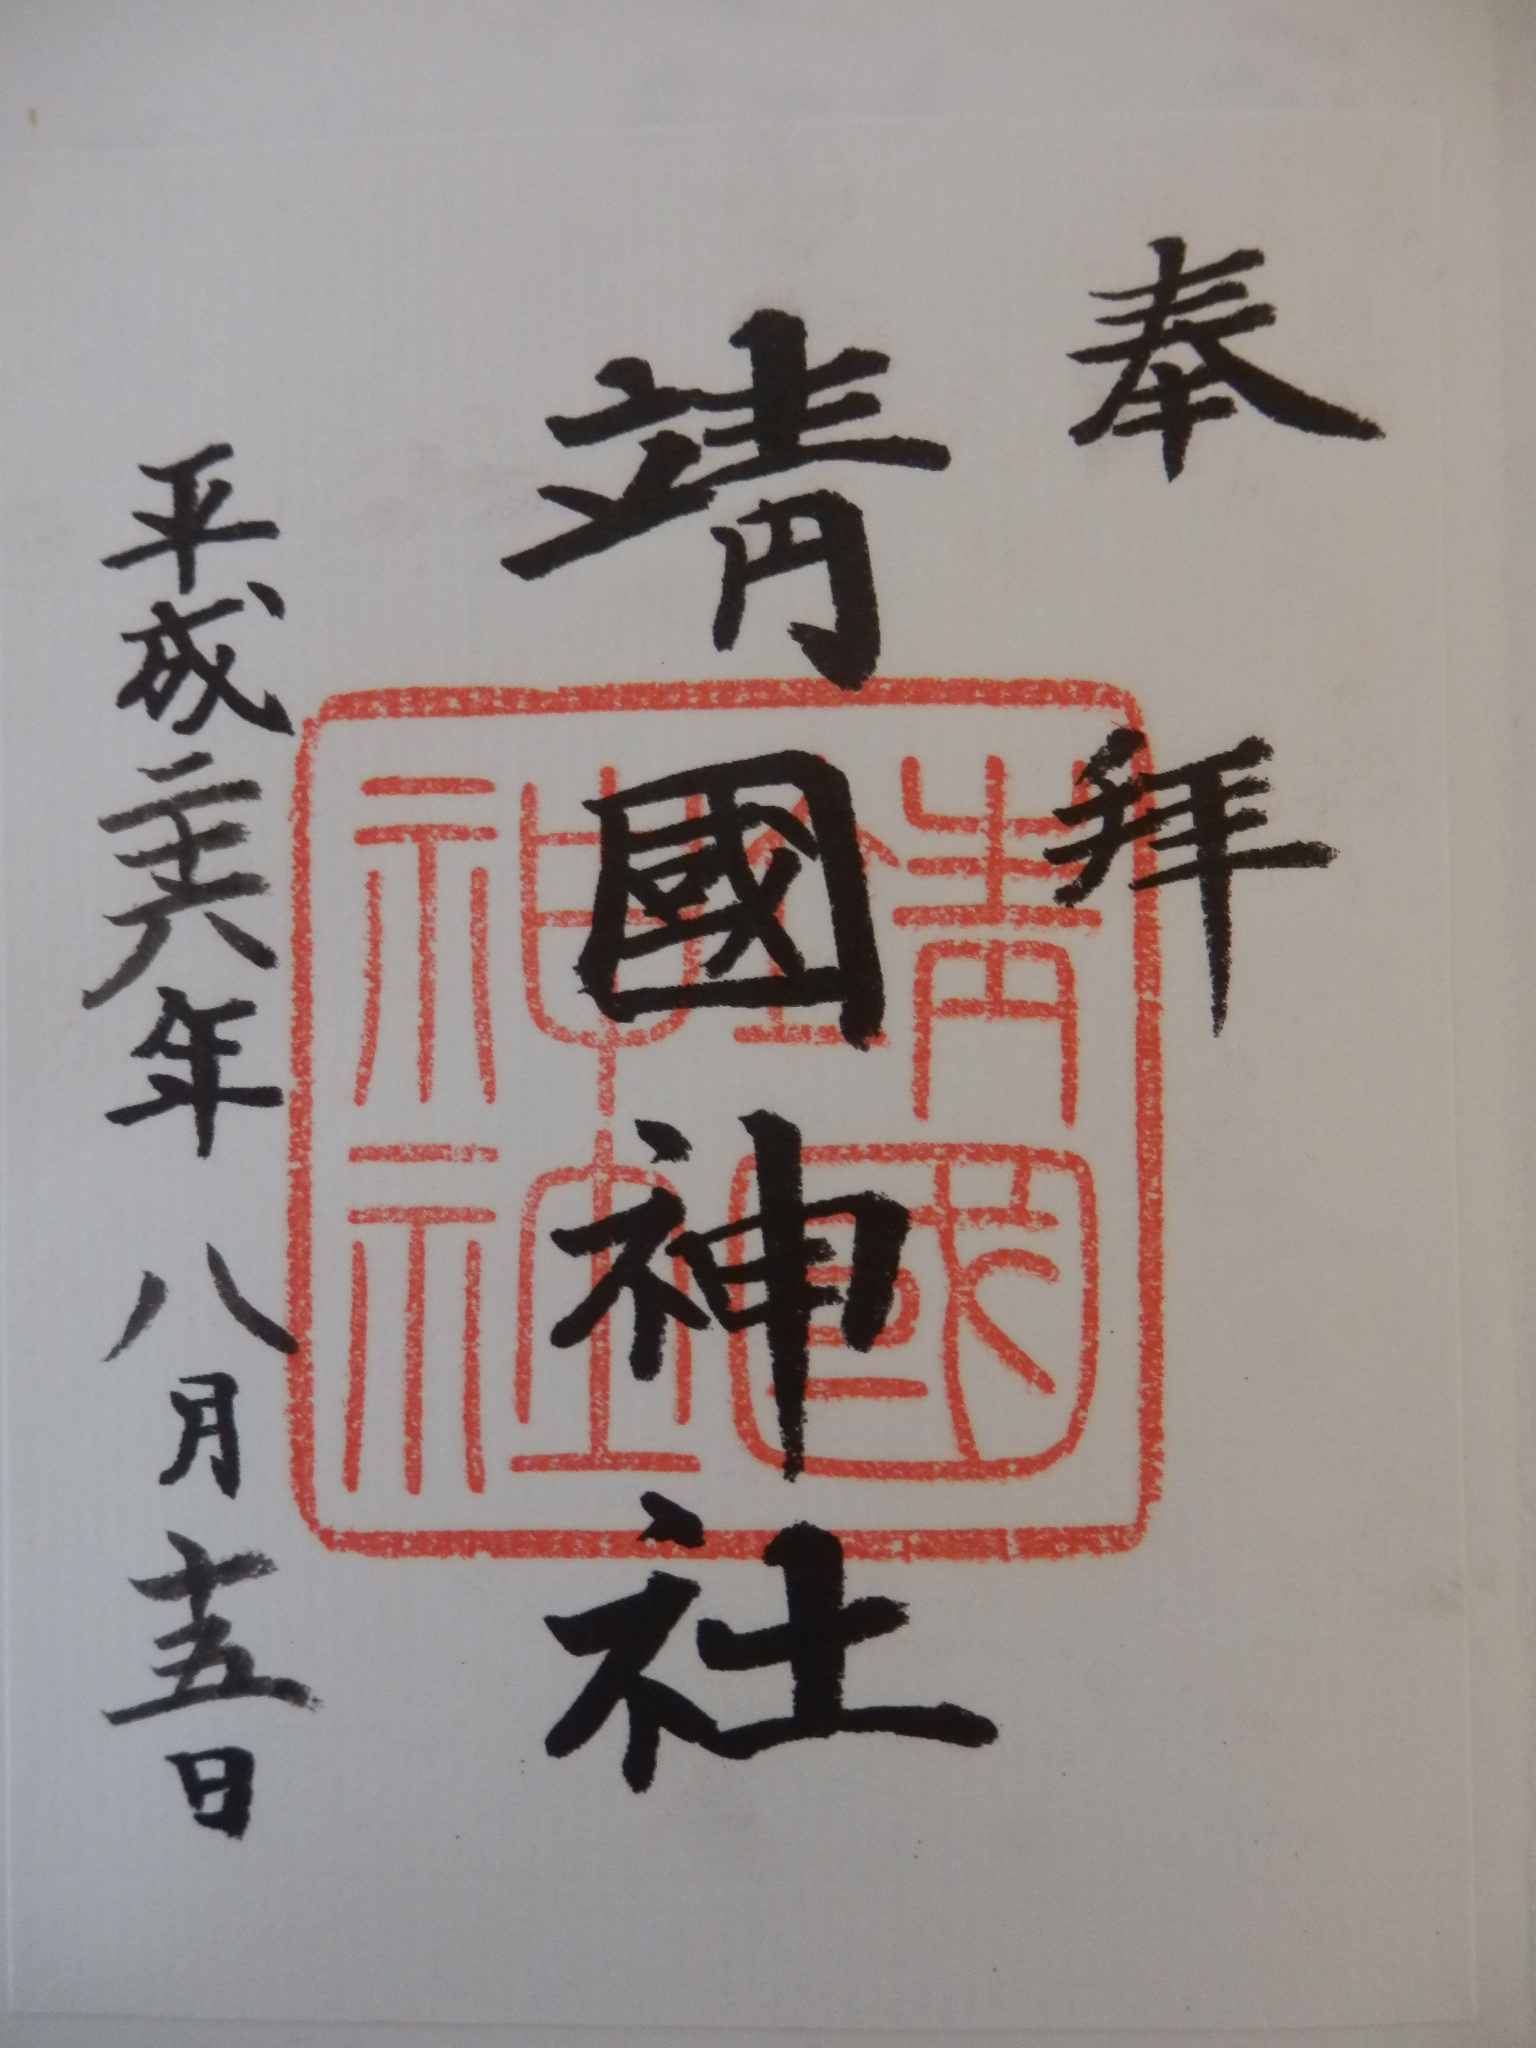 奉拜
靖國神社
平成二十六年八月十五日
靖國神社